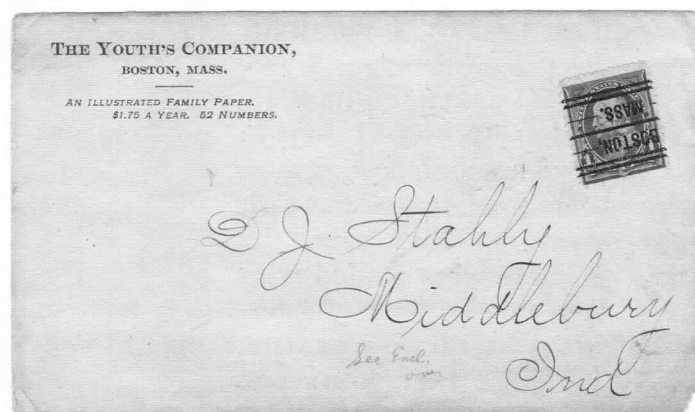 THE YOUTH'S COMPANION,
BOSTON, MASS.
AN ILLUSTRATED FAMILY PAPER.
$1.75 A YEAR. 52 NUMBERS.
BOSTON,
MASS.
D J. Stahly
Middlebury
Ind
See Encl.
over